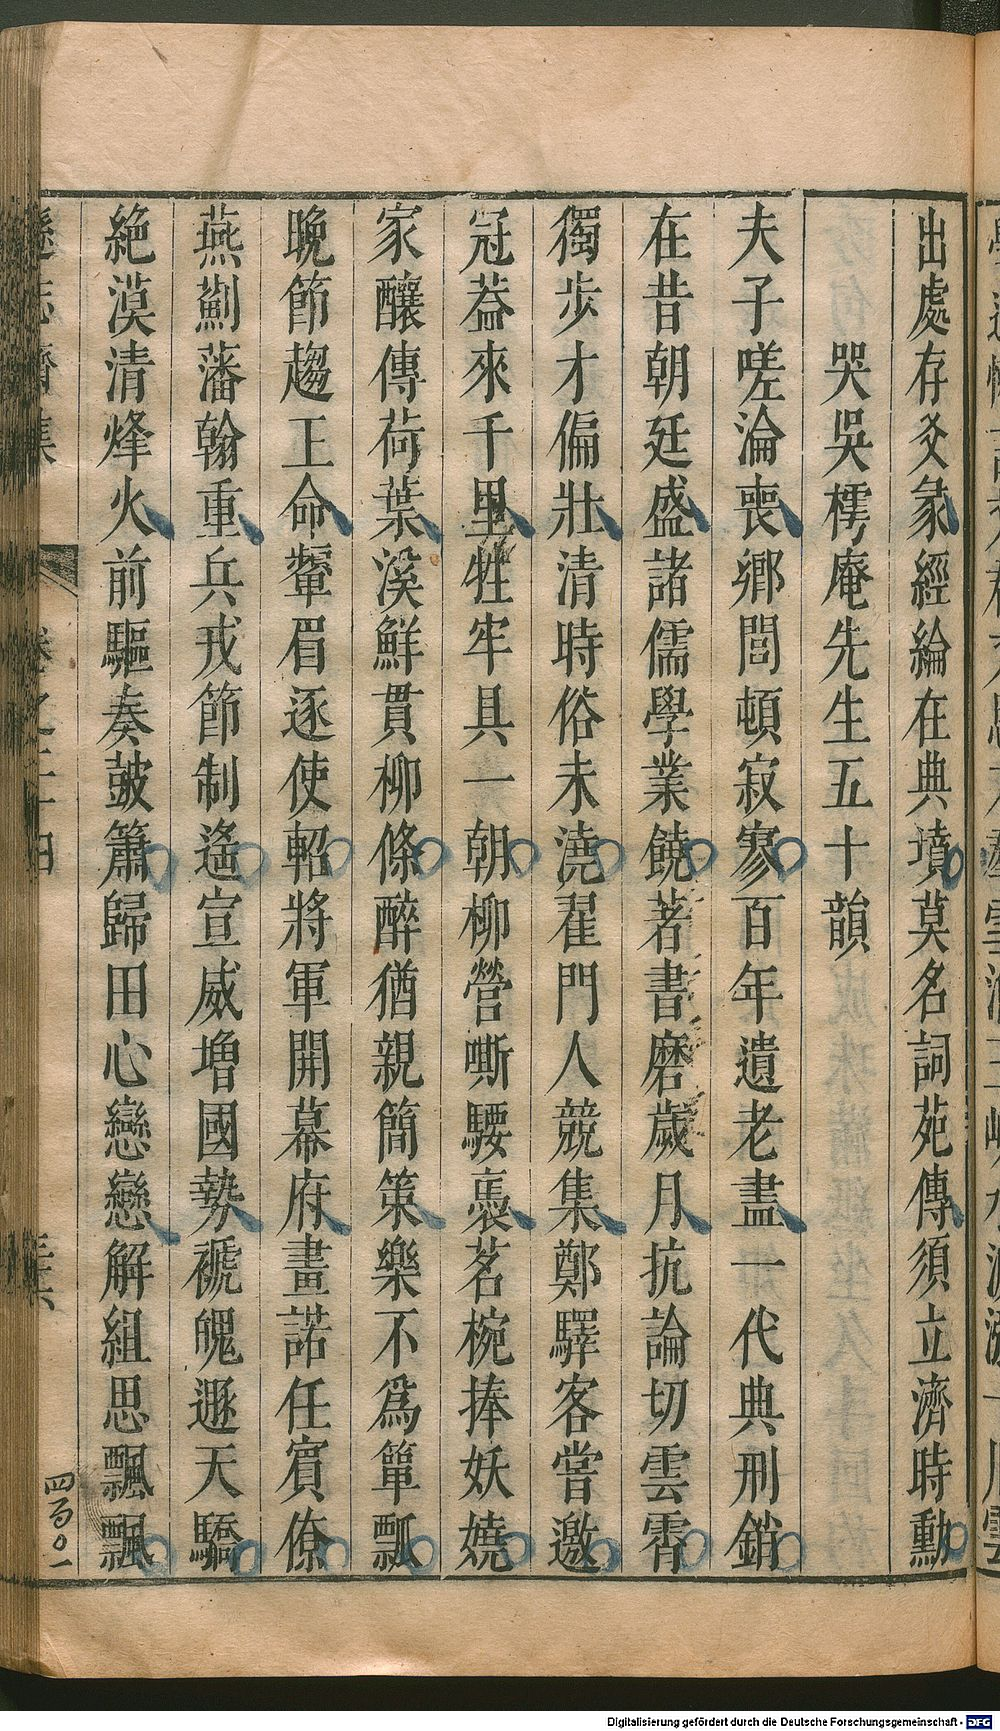 出處存爻彖經綸在典墳莫名詞苑傳須立濟時勳
哭吳樗庵先生五十韻
夫子嗟淪喪鄉閭頓寂寥百年遺老盡一代典刑銷
在昔朝廷盛諸儒學業饒著書磨歲月抗論切雲霄
獨步才偏壯清時俗未澆翟門人競集鄭驛客嘗邀
冠葢來千里牲牢具一朝柳營嘶騕褭茗椀捧妖嬈
家釀傳荷葉溪鮮貫柳條醉猶親簡策樂不為簞瓢
晚節趨王命顰眉逐使軺將軍開幕府畫諾任賓僚
燕薊藩翰重兵戎節制遙宣威增國勢褫魄遯天驕
絕漠清烽火前驅奏皷簫歸田心戀戀解組思飄飄
遜志齋集 卷之二十四
四百〇一
Digitalisierung gefördert durch die Deutsche Forschungsgemeinschaft - DFG